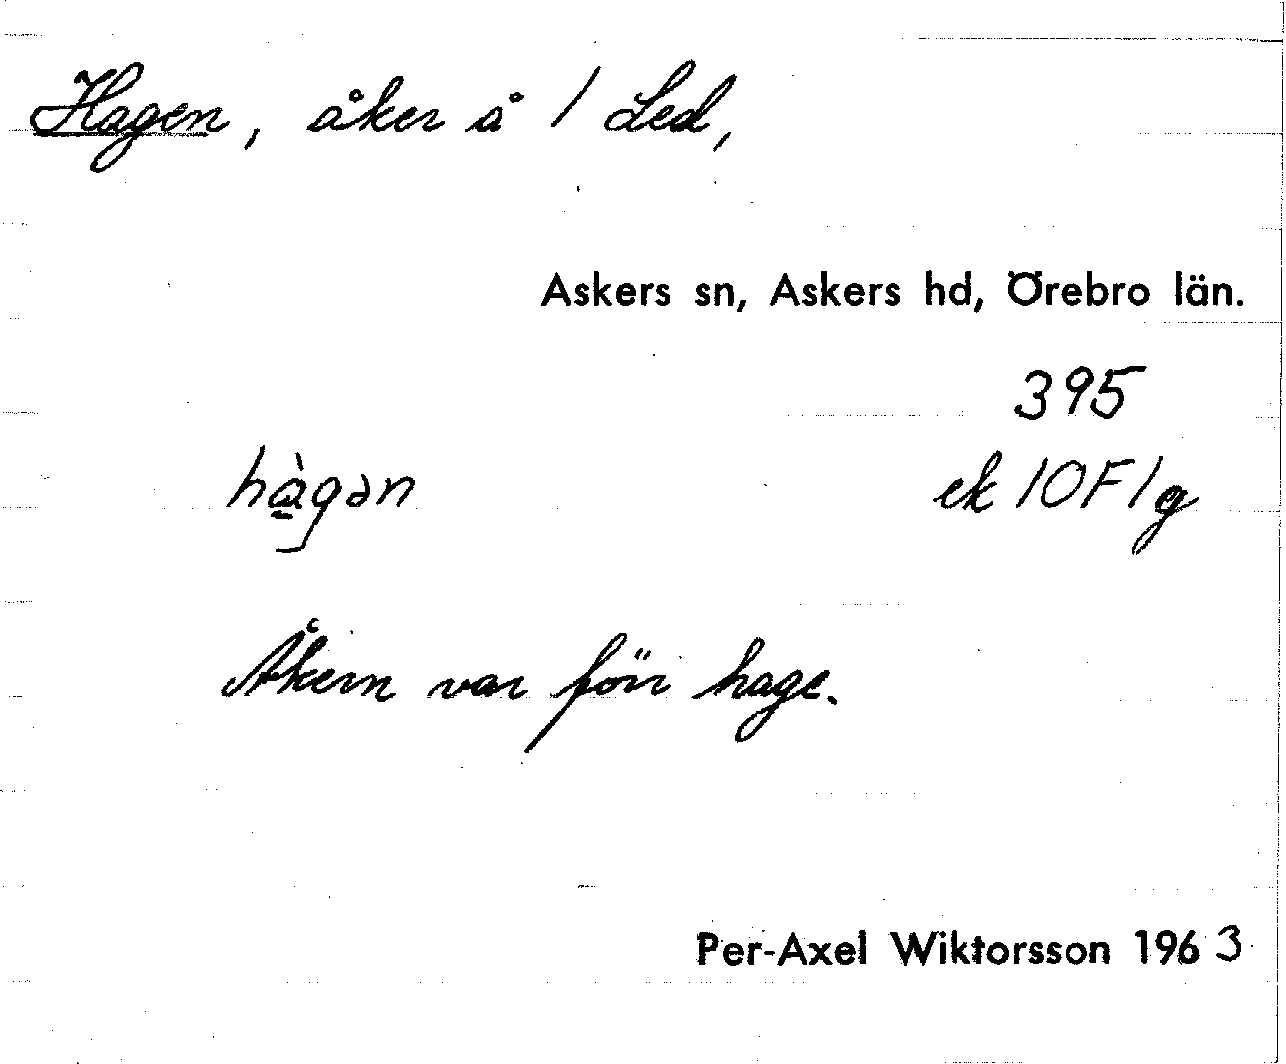 Hagen, åker å 1 Led,
Askers sn, Askers hd, Örebro län.
395
hа̀gən
ek 10F1g
Åkern var förr hage.
Per-Axel Wiktorsson 1963